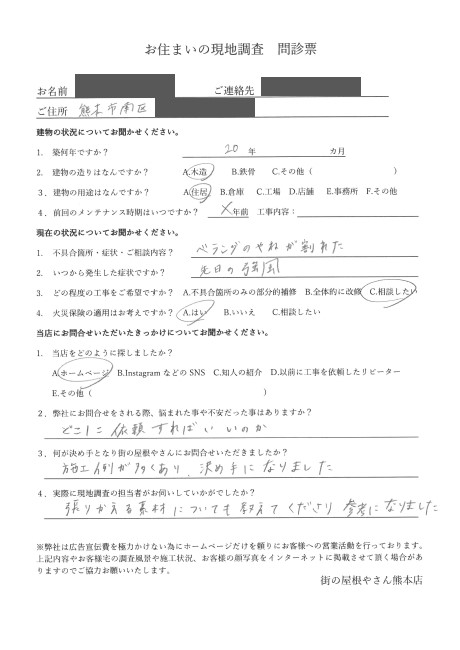 お住まいの現地調査 問診票
お名前 ご連絡先
ご住所 熊本市南区
建物の状況についてお聞かせください。
1. 築何年ですか? 20 年 カ月
2. 建物の造りはなんですか? A.木造 B.鉄骨 C.その他( )
3. 建物の用途はなんですか? A.住居 B.倉庫 C.工場 D.店舗 E.事務所 F.その他
4. 前回のメンテナンス時期はいつですか? × 年前 工事内容:
現在の状況についてお聞かせください。
1. 不具合箇所・症状・ご相談内容? ベランダのやねが割れた
2. いつから発生した症状ですか? 先日の強風
3. どの程度の工事をご希望ですか? A.不具合箇所のみの部分的補修 B.全体的に改修 C.相談したい
4. 火災保険の適用はお考えですか? A.はい B.いいえ C.相談したい
当店にお問合せいただいたきっかけについてお聞かせください。
1. 当店をどのように探しましたか?
A.ホームページ B.InstagramなどのSNS C.知人の紹介 D.以前に工事を依頼したリピーター
E.その他( )
2. 弊社にお問合せをされる際、悩まれた事や不安だった事はありますか?
どこに依頼すればいいのか
3. 何が決め手となり街の屋根やさんにお問合せいただきましたか?
施工例が多くあり、決め手になりました
4. 実際に現地調査の担当者がお伺いしていかがでしたか?
張りかえる素材についても教えてくださり参考になりました
※弊社は広告宣伝費を極力かけない為にホームページだけを頼りにお客様への営業活動を行っております。
上記内容やお客様宅の調査風景や施工状況、お客様の顔写真をインターネットに掲載させて頂く場合があ
りますのでご協力お願いいたします。
街の屋根やさん熊本店